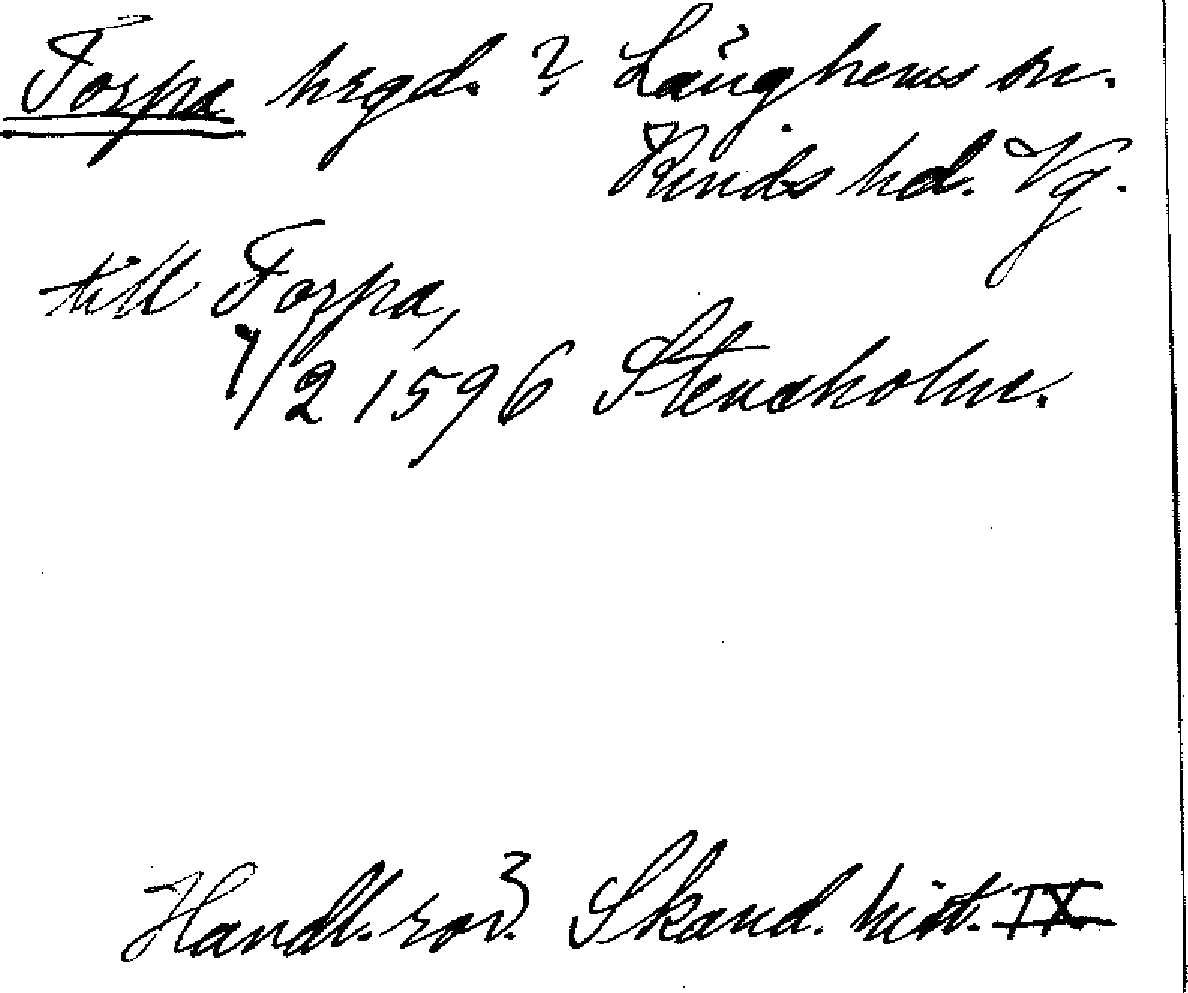 Torpa hrgd. ? Länghems sn.
Kinds hd. Vg.
till Torpa,
1/2 1596 Stensholm.
Handl. rör. Skand. hist. IX